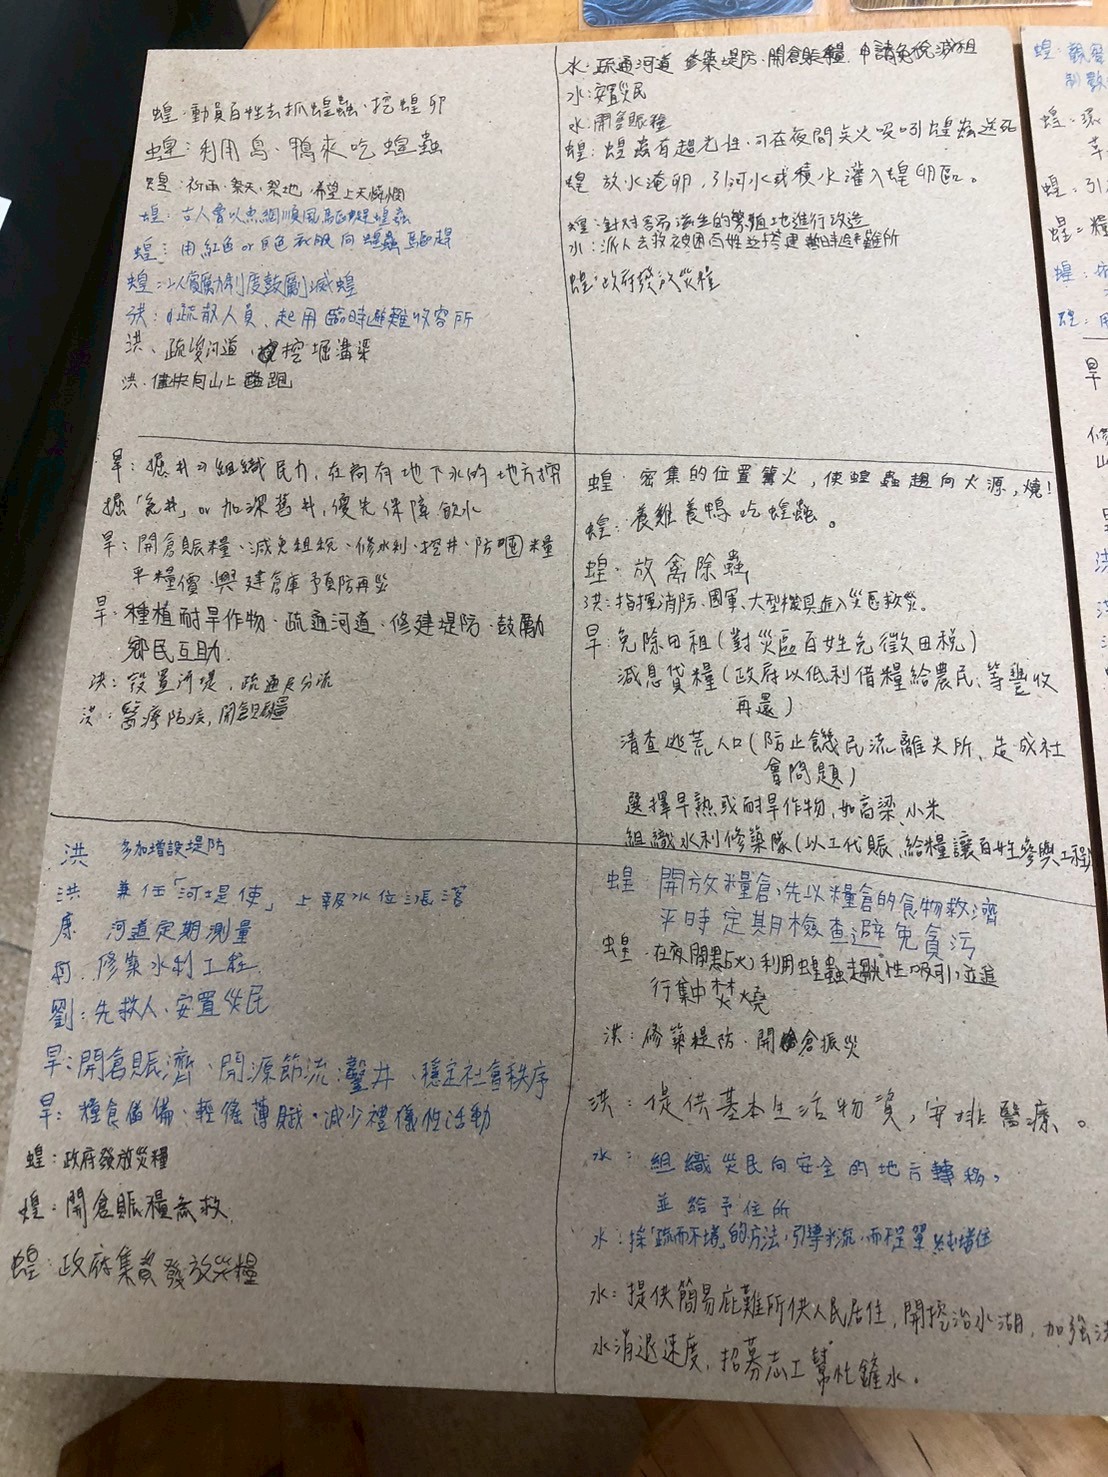 蝗：動員百性去抓蝗蟲、挖蝗卵
蝗：利用鳥、鴨來吃蝗蟲
蝗：祈雨、祭天、祭地 希望上天憐憫
蝗：古人會以魚網順風驅趕蝗蟲
蝗：用紅色or白色衣服向蝗蟲驅趕
蝗：以獎勵制度鼓勵滅蝗
洪：疏散人員、起用臨時避難收容所
洪、疏浚河道、挖掘溝渠
洪．儘快向山上跑
水：疏通河道 修築堤防、開倉賑糧、申請免稅減租
水：安置災民
水：開倉賑糧
蝗：蝗蟲有趨光性，可在夜間点火吸引蝗蟲送死
蝗 放水淹卵，引河水或積水灌入蝗卵區。
蝗：針對容易滋生的繁殖地進行改造
水：派人去救被困百姓並搭建臨時避難所
蝗：政府發放災糧
旱：掘井：組織民力，在尚有地下水的地方挖
掘「 井」or加深舊井，優先保障飲水
旱：開倉賑糧、減免租稅、修水利、挖井、防囤糧
平糧價、興建倉庫予預防再災
旱：種植耐旱作物、疏通河道、修建堤防、鼓勵
鄉民互助．
洪：設置河堤，疏通及分流
洪：醫療防疫，開倉賑糧
蝗．密集的位置篝火，使蝗蟲趨向火源，燒！
蝗．養雞養鴨吃蝗蟲。
蝗．放禽除蟲
洪：指揮消防、國軍、大型機具進入災區救災。
旱：免除田租（對災區百姓免徵田稅）
減息貸糧（政府以低利借糧給農民，等豐收
再還）
清查逃荒人口（防止饑民流離失所，造成社
會問題）
選擇早熟或耐旱作物，如高粱、小米
組織水利修築隊（以工代賑，給糧讓百姓參與工程）
洪 多加增設堤防
洪 兼任「河堤使」上報水位漲落
康 河道定期測量
柯．修築水利工程
劉：先救人、安置災民
旱：開倉賑濟、開源節流、鑿井、穩定社會秩序
旱：糧食儲備、輕徭薄賦、減少禮儀性活動
蝗：政府發放災糧
蝗：開倉賑糧 救
蝗：政府集資發放災糧
蝗．開放糧倉，先以糧倉的食物救濟
平時定期檢查避免貪污
蝗．在夜間點火，利用蝗蟲趨光性吸引，並進
行集中焚燒
洪：修築堤防、開倉振災
洪：提供基本生活物資，安排醫療。
水：組織災民向安全的地方轉移，
並給予住所
水：採「疏而不堵」的方法，引導水流，而不是單純堵住
水：提供簡易庇難所供人民居住，開挖治水湖，加強洪
水消退速度，招募志工幫忙鏟水。
蝗：觀
制
蝗：環
蝗：引
蝗：糧
蝗：
旱
修
山
洪